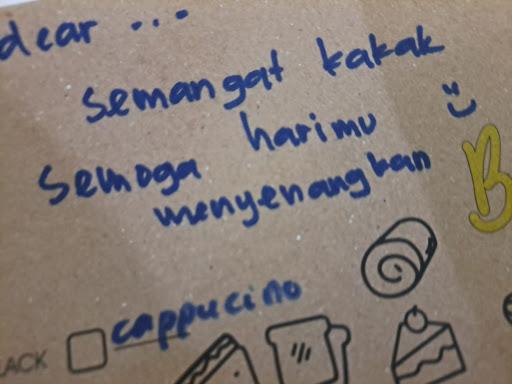 dear ...
semangat kakak
semoga harimu :)
menyenangkan
B
LACK cappucino